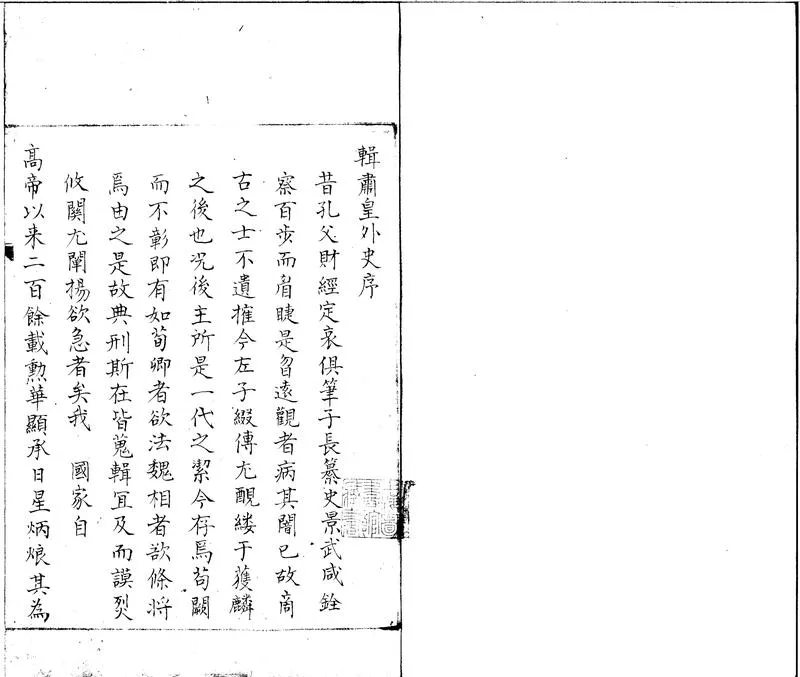 輯肅皇外史序
昔孔父財經定哀俱筆子長纂史景武咸銓
察百步而眉睫是曶遠觀者病其闇已故商
古之士不遺摧今左子綴傳尤覼縷于獲麟
之後也况後主所是一代之潔今存焉苟闕
而不彰即有如荀卿者欲法魏相者欲條將
焉由之是故典刑斯在皆蒐輯冝及而謨烈
攸關尤闡揚欲急者矣我　國家自
高帝以来二百餘載勲華顯承日星炳烺其為